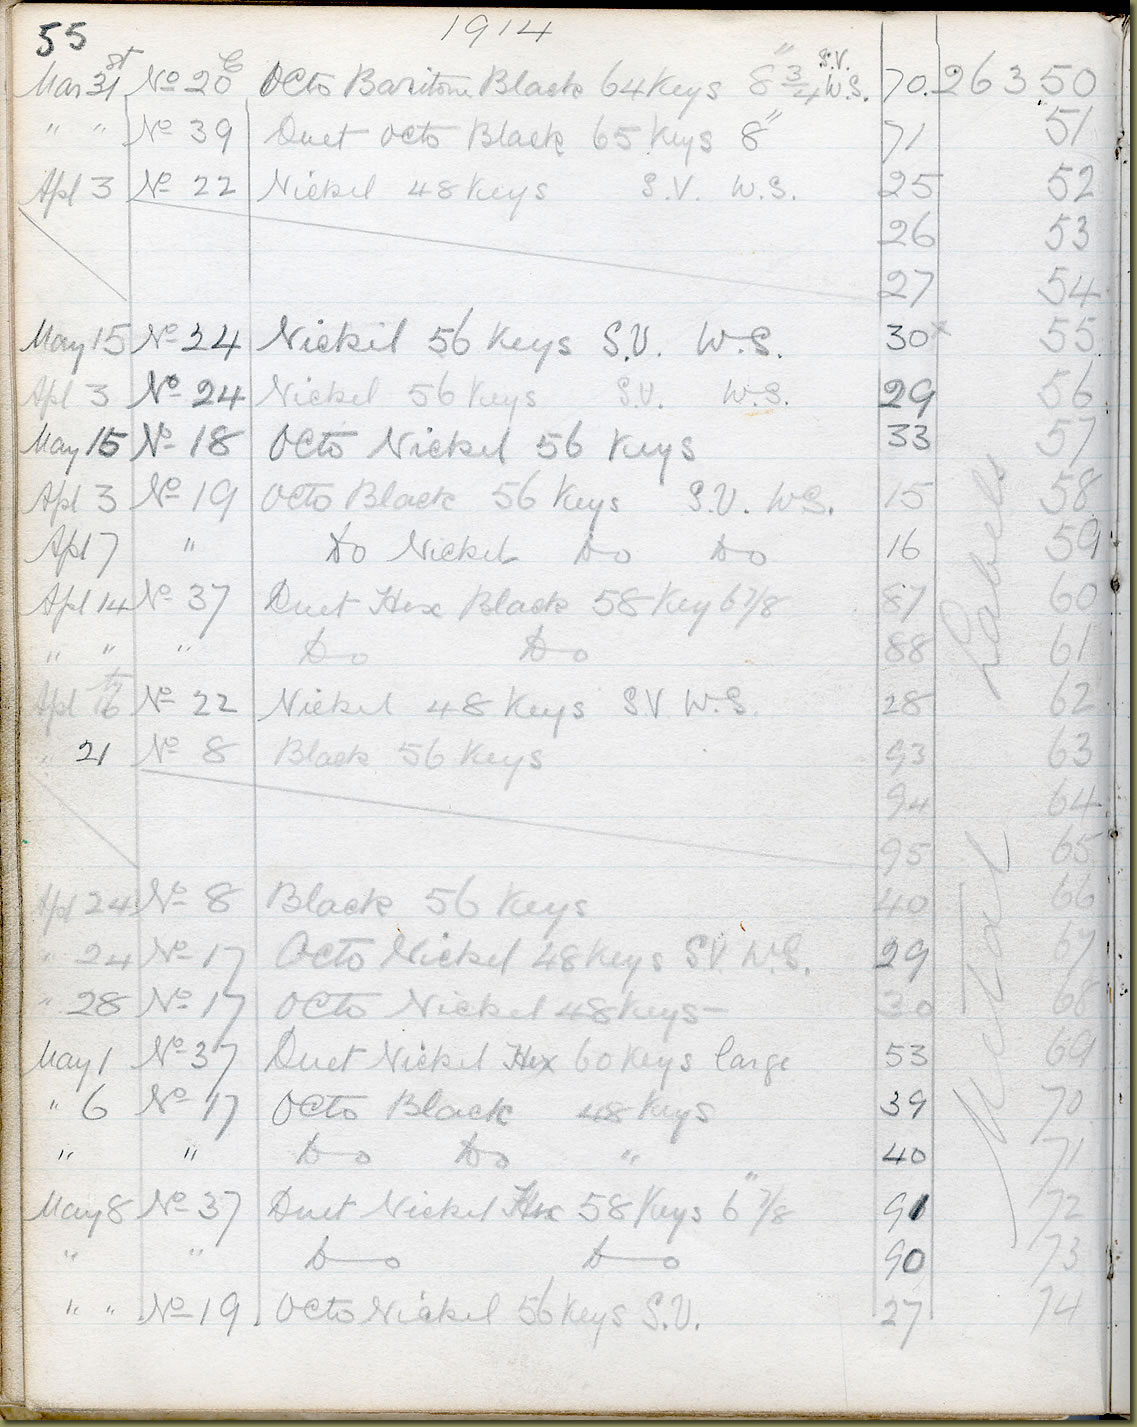 55 1914
Mar 31st No 20C Octo Baritone Black 64 Keys 8" 3/4 S.V. W.S. 70. 26350
" " No 39 Duet Octo Black 65 Keys 8" 71 51
Apl 3 No 22 Nickel 48 Keys S.V. W.S. 25 52
26 53
27 54
May 15 No 24 Nickel 56 Keys S.V. W.S. 30x 55
Apl 3 No 24 Nickel 56 Keys S.V. W.S. 29 56
May 15 No 18 Octo Nickel 56 Keys 33 57
Apl 3 No 19 Octo Black 56 Keys S.V. W.S. 15 58
Apl 7 " Do Nickel Do Do 16 59
Apl 14 No 37 Duet Hex Black 58 Key 6 7/8 87 60
" " " Do Do 88 61
Apl No 22 Nickel 48 Keys SV W.S. 28 62
" 21 No 8 Black 56 Keys 93 63
94 64
95 65
Apl 24 No 8 Black 56 Keys 40 66
" 24 No 17 Octo Nickel 48 Keys SV. W.S. 29 67
" 28 No 17 Octo Nickel 48 Keys- 30 68
May 1 No 37 Duet Nickel Hex 60 Keys large 53 69
" 6 No 17 Octo Black 48 Keys 39 70
" " Do Do " 40 71
May 8 No 37 Duet Nickel Hex 58 Keys 6" 7/8 91 72
" " Do Do 90 73
" " No 19 Octo Nickel 56 Keys S.V. 27 74
Metal Labels